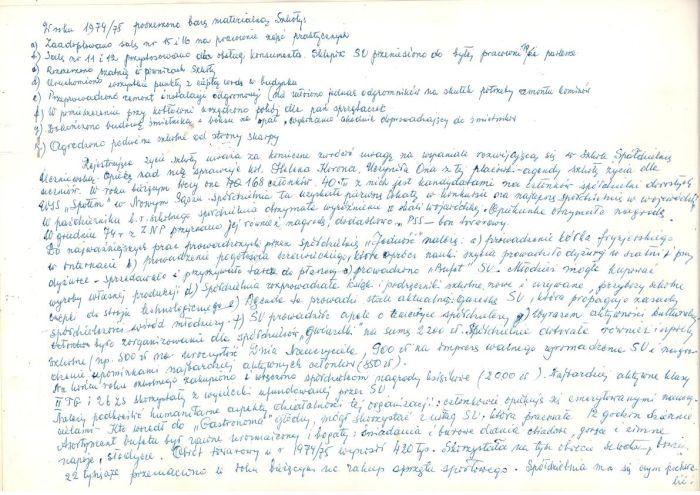 W roku 1974/75 poszerzono bazę materialną Szkoły:
a) Zaadaptowano salę nr 15 i 16 na pracownie zajęć praktycznych
b) Salę nr 11 i 12 przystosowano dla obsługi konsumenta. Sklepik SU przeniesiono do byłej pracowni
c) Rozszerzono pralnię w piwnicach Szkoły
d) Uruchomiono wszystkie punkty z ciepłą wodą w budynku
e) Przeprowadzono remont instalacji odgromowej (nie zrobiono jednak odgromników na skutek potrzeby remontu kominów
f) W pomieszczeniu przy kotłowni urządzono pokój dla pań sprzątaczek
g) Dokończono budowę śmietnika i boksu na opał, wykonano chodnik doprowadzający do śmietników
h) Ogrodzono podwórze szkolne od strony skarpy
Rejestrując życie szkoły uważa za konieczne zwrócić uwagę na wspaniale rozwijającą się w Szkole Spółdzielnię
Uczniowską. Opiekę nad nią sprawuje kol. Helena Korona. Uczyniła Ona z tej placówki-agendy szkołę życia dla
uczniów. W roku bieżącym liczy ona 168 członków. 40-tu z nich jest kandydatami na członków spółdzielni dorosłych
WSS "Społem" w Nowym Sączu. Spółdzielnia ta uzyskała lokatę w konkursie na najlepszą spółdzielnię w województwie
w październiku b.r. szkolnego spółdzielnia otrzymała wyróżnienie w skali wojewódz. Opiekunka otrzymała nagrodę
W grudniu 74 r z ZNP przyznano jej również nagrodę, dodatkowo "PSS - bon towarowy.
Do najważniejszych prac prowadzonych przez Spółdzielnię "Jedność" należą: a) prowadzenie kółka fryzjerskiego
w internacie b) prowadzenie pogotowia krawieckiego, które oprócz nauki szycia prowadziło dyżury w szatni i przy
dyżurce - sprzedawało i przyszywało tarcze do płaszczy c) prowadzono "Bufet" SU. Młodzież mogła kupować
wyroby własnej produkcji d) Spółdzielnia rozprowadzała książki i podręczniki szkolne, nowe i używane, przybory szkolne
czepki do stroju technologicznego e) Agenda ta prowadzi stale aktualną gazetkę SU, która propaguje zasady
spółdzielczości wśród młodzieży. f) SU prowadziło apele o tematyce spółdzielczej g) Wyrazem aktywności kulturalnej
było zorganizowanie dla spółdzielców "Gwiazdki" na sumę 2200 zł. Spółdzielnia dotowała również imprezy
szkolne (np. 500 zł na uroczystość Dnia Nauczyciela, 900 zł na imprezę walnego zgromadzenia SU i nagro-
dzenie upominkami najbardziej aktywnych członków (350 zł).
Na końcu roku szkolnego zakupiono i wręczono spółdzielcom nagrody książkowe (2000 zł). Najbardziej aktywne klasy
II TG i 2b ZS skorzystały z wycieczki ufundowanej przez SU.
Należy podkreślić humanitarne aspekty działalności tej organizacji; członkowie opiekują się emerytowanymi nauczy-
cielami. Kto wszedł do "Gastronoma" głodny, mógł skorzystać z usług SU, która pracowała 12 godzin dziennie
Asortyment bufetu był zawsze urozmaicony i bogaty: śniadania i barowe dania obiadowe, gorące i zimne
napoje, słodycze. Obrót towarowy w r 1974/75 wyniósł 420 tys. Skorzystała na tym obrocie szkoła, bowiem
22 tysiące przeznaczono w roku bieżącym na zakup sprzętu sportowego. Spółdzielnia ma się czym pochwa-
lić.